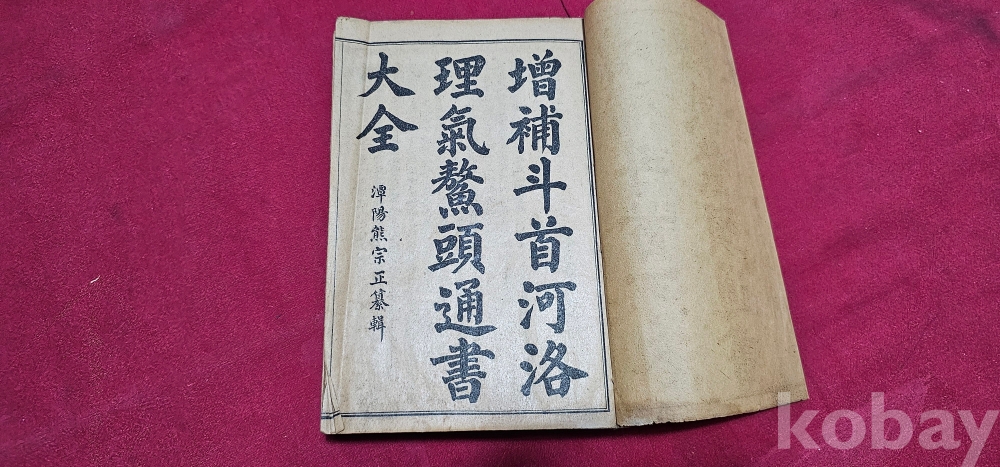 增補斗首河洛
理氣鰲頭通書
大全
潭陽熊宗正纂輯
kobay